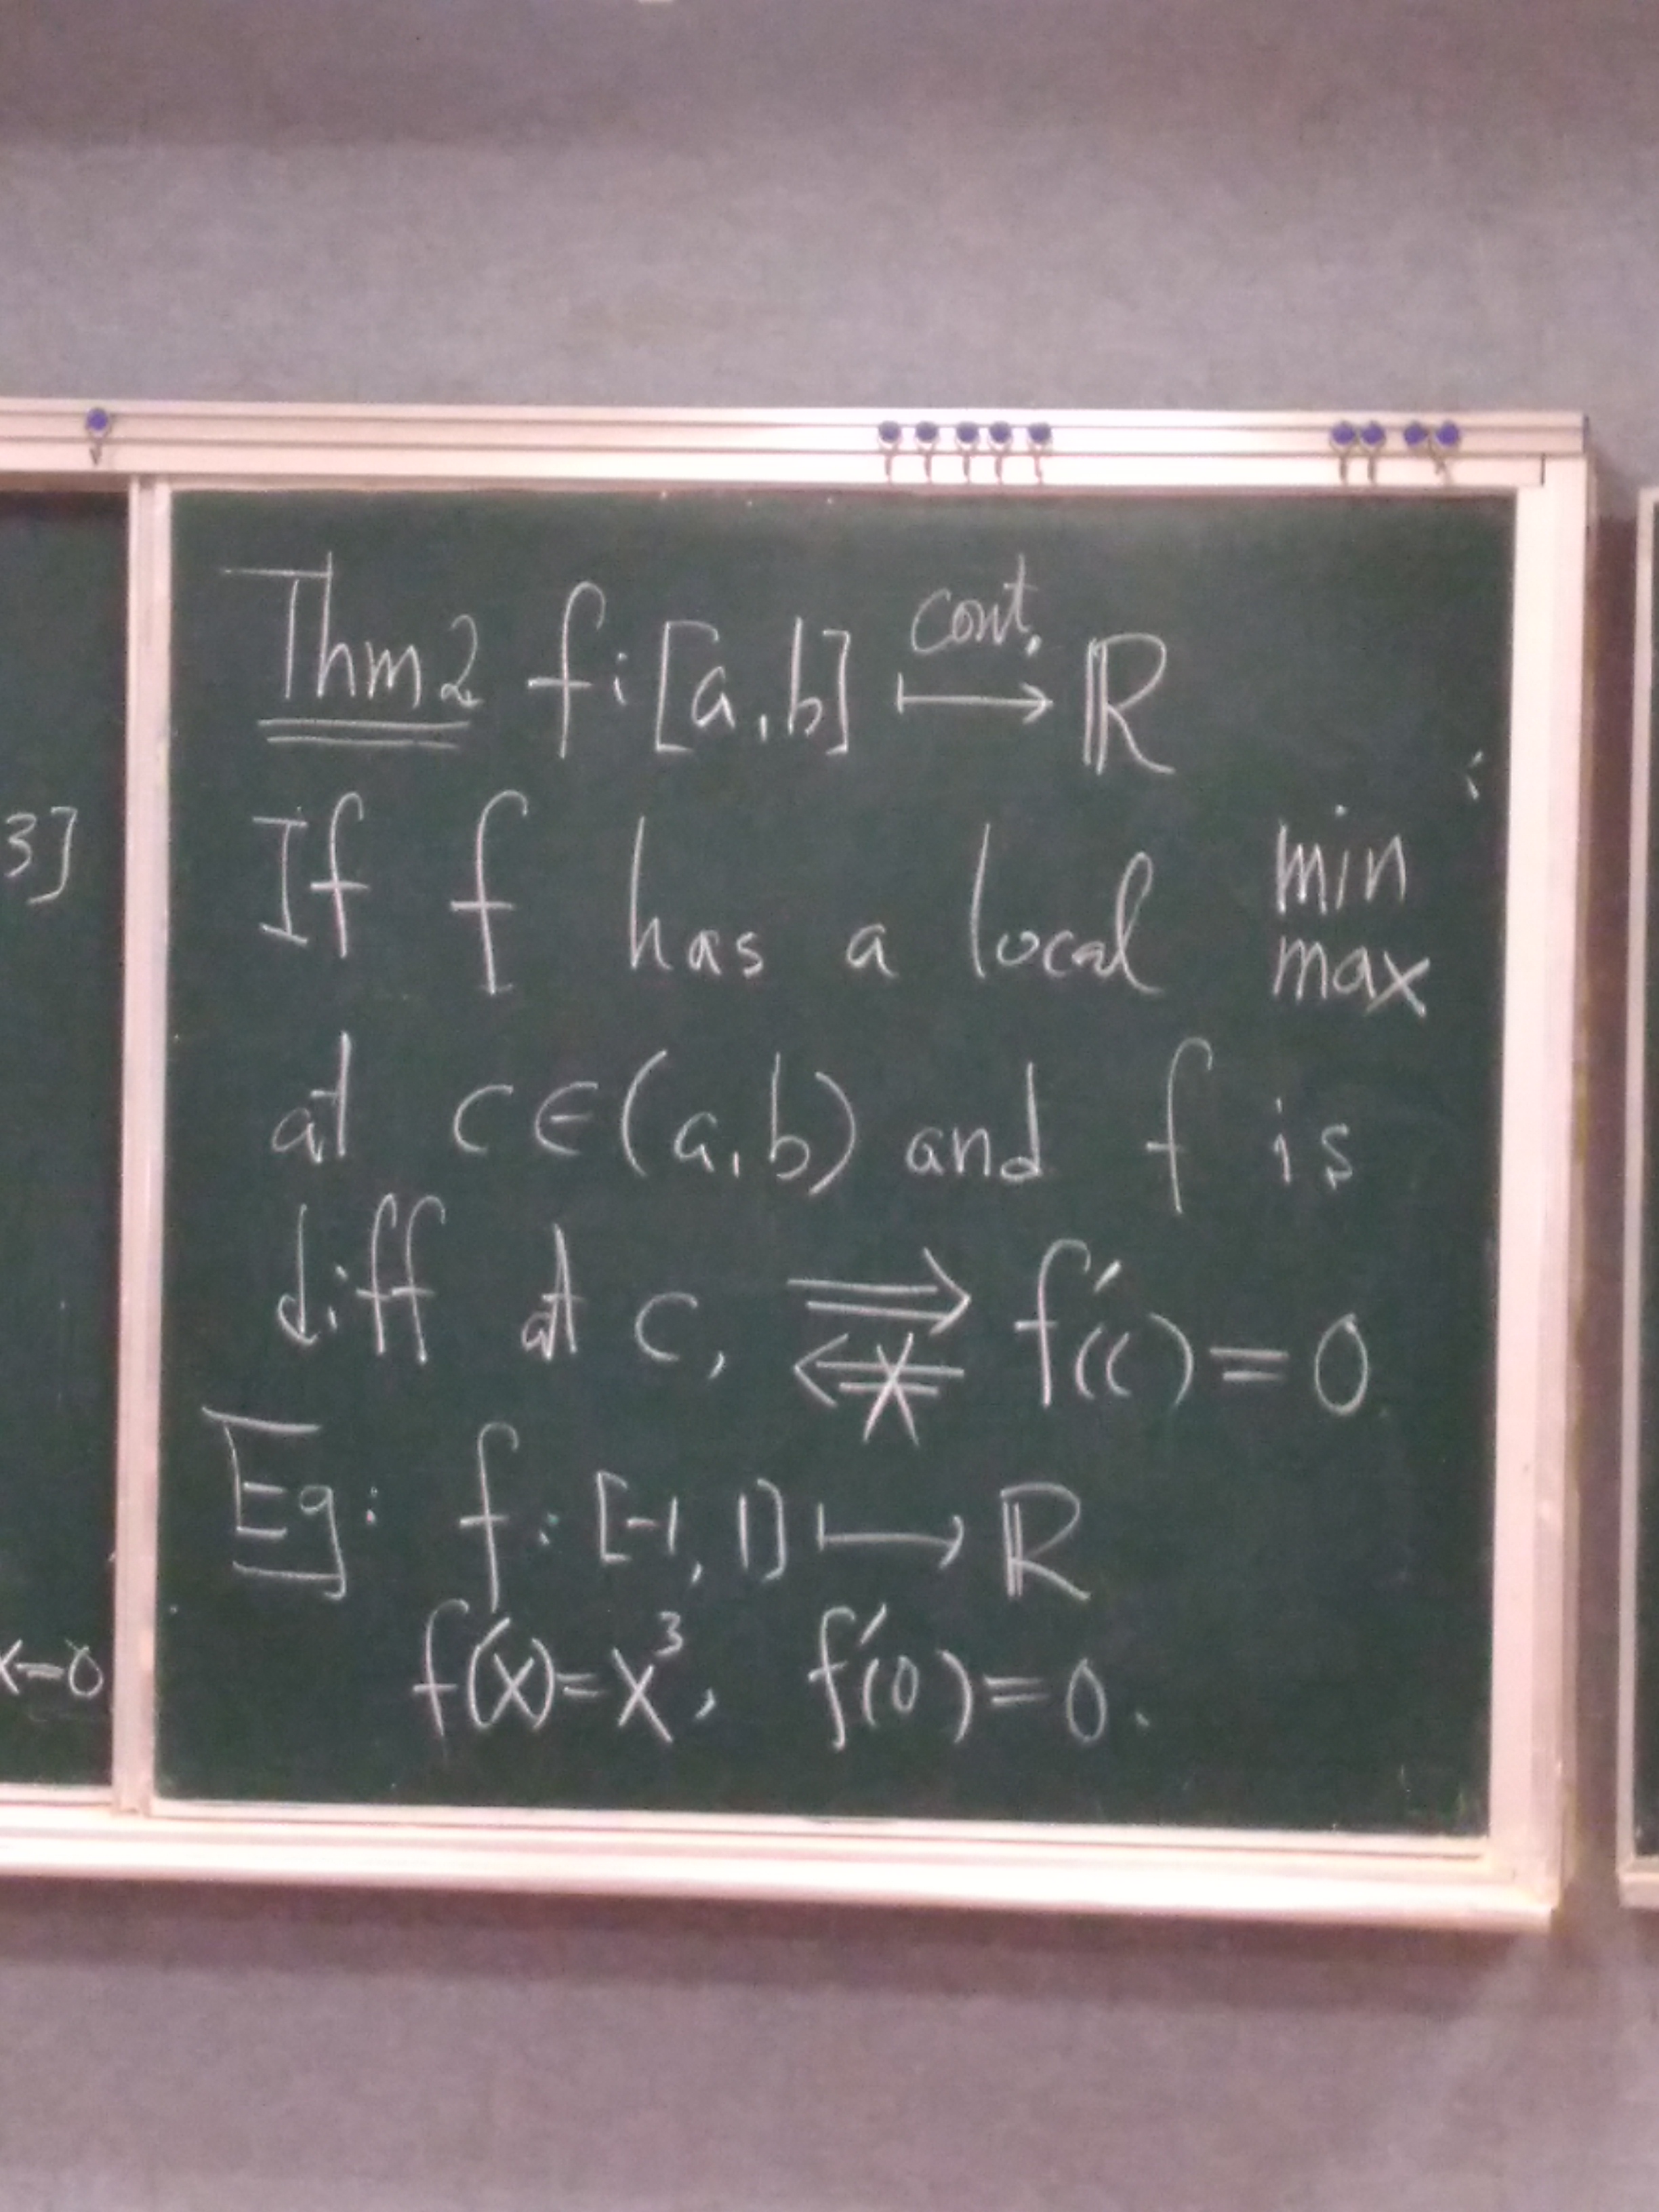 Thm2 f: [a,b] ⟼ ℝ
cont.
If f has a local min
max
at c∈(a,b) and f is
diff at c, ⟹ f'(c)=0
⟸̸
Eg: f: [-1,1] ⟼ ℝ
f(x)=x³, f'(0)=0.
3]
x=0